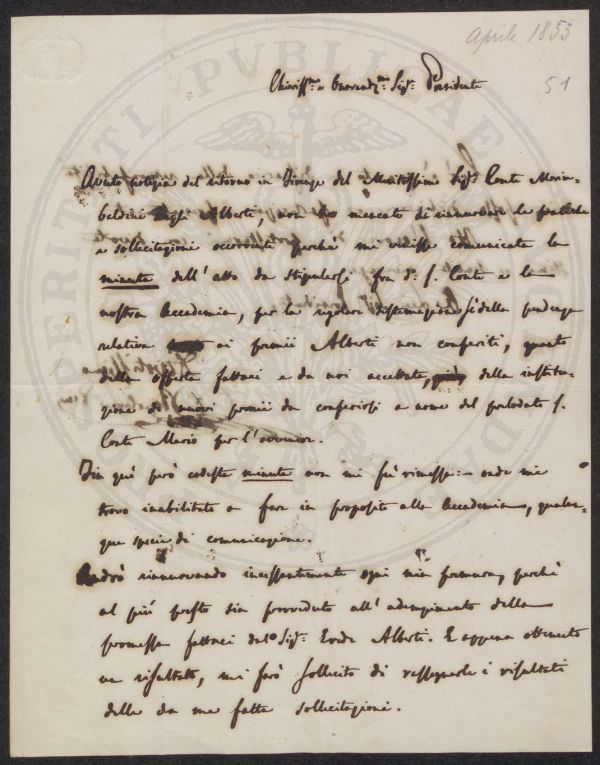 Aprile 1853
51
Chiariss.mo e Onorand.mo Sig.r Presidente
Avuto notizia del ritorno in Firenze del Meritissimo Sig.r Conte Morin-
beldini degli Alberti, non ho mancato di rinnovare le pratiche
e sollecitazioni occorrenti perchè mi venisse comunicata la
minuta dell'atto da stipularsi fra d.o S. Conte e la
nostra Accademia, per la regolare sistemazione sì della pendenza
relativa ai premii Alberti non conferiti, quanto
della offerta fattaci e da noi accettata, della istitu-
zione di nuovi premii da conferirsi a nome del prelodato S.
Conte Mario per l'avvenire.
Fin quì però codesta minuta non mi fù rimessa: onde mi
trovo inabilitato a fare in proposito alla Accademia, qualun-
que specie di comunicazione.
Andrò rinnovando incessantemente ogni mia premura, perchè
al più presto sia provveduto all'adempimento della
promessa fattaci dal Sig.r Erede Alberti. E appena ottenuto
un risultato, mi farò sollecito di rassegnarle i risultati
delle da me fatte sollecitazioni.